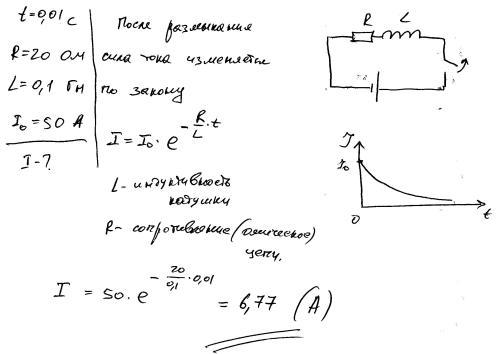 t=0,01 с
R=20 ом
L=0,1 Гн
I₀=50 А
I-?
После размыкания
сила тока изменяется
по закону
I = I₀ · e^(-R/L · t)
L - индуктивность
катушки
R - сопротивление (омическое)
цепи.
I = 50 · e^(-20/0,1 · 0,01) = 6,77 (А)
R L
I
I₀
0 t